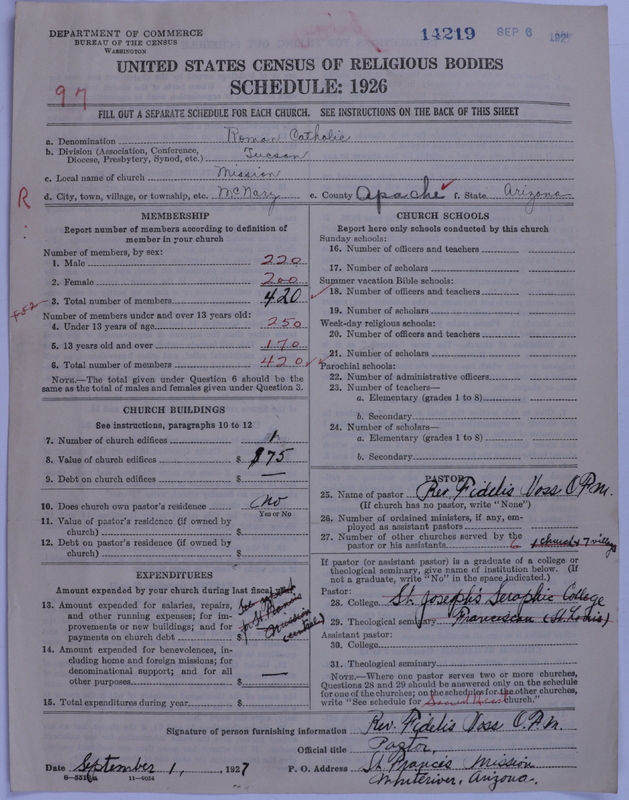 DEPARTMENT OF COMMERCE
BUREAU OF THE CENSUS
WASHINGTON
14219 SEP 6 192
UNITED STATES CENSUS OF RELIGIOUS BODIES
SCHEDULE: 1926
97
FILL OUT A SEPARATE SCHEDULE FOR EACH CHURCH. SEE INSTRUCTIONS ON THE BACK OF THIS SHEET
a. Denomination Roman Catholic
b. Division (Association, Conference, Diocese, Presbytery, Synod, etc.) Tucson
c. Local name of church Mission
R
d. City, town, village, or township, etc. McNary e. County Apache f. State Arizona
MEMBERSHIP
Report number of members according to definition of
member in your church
Number of members, by sex:
1. Male 220
2. Female 200
3. Total number of members 420
Number of members under and over 13 years old:
4. Under 13 years of age 250
5. 13 years old and over 170
6. Total number of members 420
NOTE.—The total given under Question 6 should be
the same as the total of males and females given under Question 3.
CHURCH BUILDINGS
See instructions, paragraphs 10 to 12
7. Number of church edifices 1
8. Value of church edifices $ 75
9. Debt on church edifices $ —
10. Does church own pastor's residence No
Yes or No
11. Value of pastor's residence (if owned by
church) $
12. Debt on pastor's residence (if owned by
church) $
EXPENDITURES
Amount expended by your church during last fiscal year
13. Amount expended for salaries, repairs,
and other running expenses; for im-
provements or new buildings; and for
payments on church debt $
See
for St. Francis
Mission
14. Amount expended for benevolences, in-
cluding home and foreign missions; for
denominational support; and for all
other purposes $ —
15. Total expenditures during year $
CHURCH SCHOOLS
Report here only schools conducted by this church
Sunday schools:
16. Number of officers and teachers
17. Number of scholars
Summer vacation Bible schools:
18. Number of officers and teachers
19. Number of scholars
Week-day religious schools:
20. Number of officers and teachers
21. Number of scholars
Parochial schools:
22. Number of administrative officers
23. Number of teachers—
a. Elementary (grades 1 to 8)
b. Secondary
24. Number of scholars—
a. Elementary (grades 1 to 8)
b. Secondary
PASTOR
25. Name of pastor Rev. Fidelis Voss O.F.M.
(If church has no pastor, write "None")
26. Number of ordained ministers, if any, em-
ployed as assistant pastors
27. Number of other churches served by the
pastor or his assistants 6 1 church & 7 villages
If pastor (or assistant pastor) is a graduate of a college or
theological seminary, give name of institution below. (If
not a graduate, write "No" in the space indicated.)
Pastor:
28. College St. Joseph's Seraphic College
29. Theological seminary Franciscan (St. Louis)
Assistant pastor:
30. College
31. Theological seminary
NOTE.—Where one pastor serves two or more churches,
Questions 28 and 29 should be answered only on the schedule
for one of the churches; on the schedules for the other churches,
write "See schedule for Sacred Heart church."
Signature of person furnishing information Rev. Fidelis Voss O.F.M.
Official title Pastor
Date September 1, 1927 P. O. Address St. Francis Mission
Whiteriver, Arizona.
11—9054